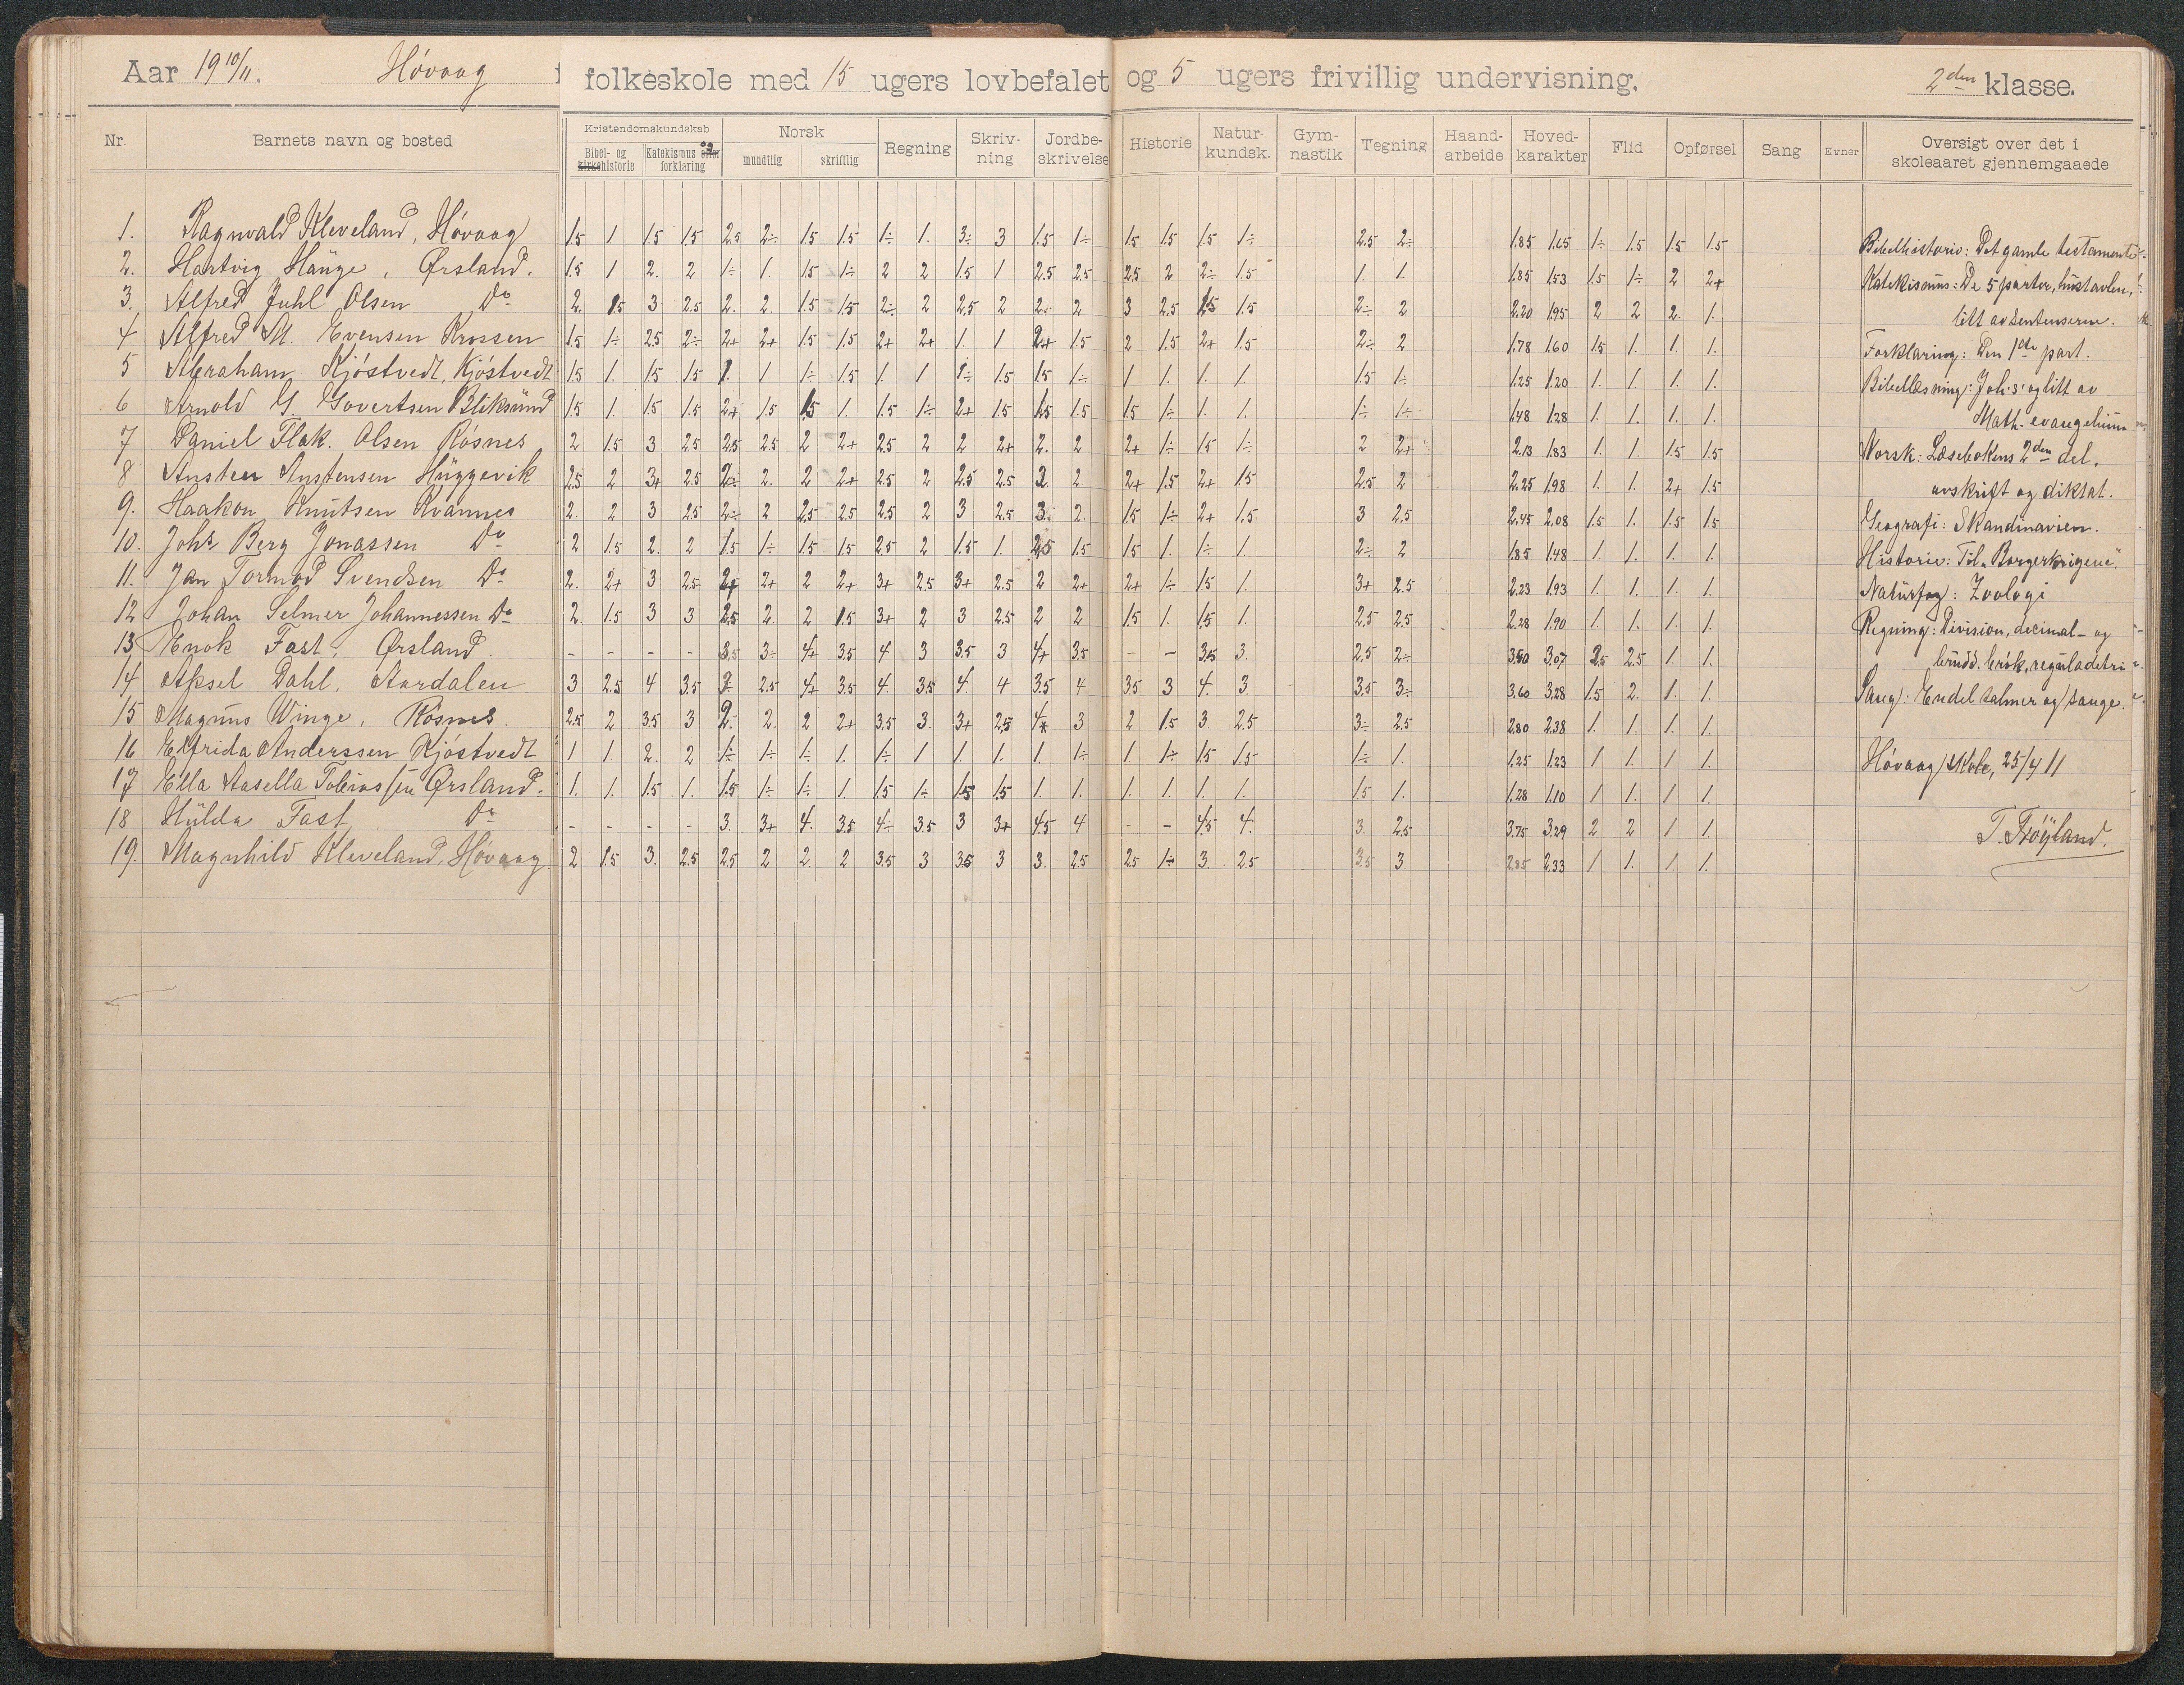 Aar 19 10/11. Høvaag folkeskole med 15 ugers lovbefalet og 5 ugers frivillig undervisning. 2den klasse.
Nr. Barnets navn og bosted Kristendomskundskab Norsk Regning Skriv-ning Jordbe-skrivelse Historie Natur-kundsk. Gym-nastik Tegning Haand-arbeide Hoved-karakter Flid Opførsel Sang Evner Oversigt over det i skoleaaret gjennemgaaede
Bibel- og kirkehistorie Katekismus eller og forklaring mundtlig skriftlig
1. Ragnvald Kleveland, Høvaag 1.5 1 1.5 1.5 2.5 2÷ 1.5 1.5 1÷ 1. 3÷ 3 1.5 1÷ 1.5 1.5 1.5 1÷ 2.5 2÷ 1.85 1.65 1÷ 1.5 1.5 1.5
2. Hartvig Hauge, Ørsland. 1.5 1 2. 2 1÷ 1. 1.5 1÷ 2 2 1.5 1 2.5 2.5 2.5 2 2÷ 1.5 1. 1. 1.85 1.53 1.5 1÷ 2 2+
3. Alfred Juhl Olsen Do 2. 1.5 3 2.5 2. 2. 1.5 1.5 2÷ 2 2.5 2 2. 2 3 2.5 1.5 1.5 2÷ 2 2.20 1.95 2 2 2. 1.
4 Alfred M. Evensen Krossen 1.5 1÷ 2.5 2÷ 2+ 2+ 1.5 1.5 2+ 2+ 1. 1 2+ 1.5 2 1.5 2+ 1.5 2÷ 2 1.78 1.60 1.5 1. 1. 1.
5 Abraham Kjøstvedt, Kjøstvedt 1.5 1. 1.5 1.5 1. 1 1÷ 1.5 1. 1 1÷ 1.5 1.5 1÷ 1 1. 1. 1. 1.5 1÷ 1.25 1.20 1. 1. 1. 1.
6 Arnold G. Govertsen Bliksund 1.5 1. 1.5 1.5 2+ 1.5 1.5 1. 1.5 1÷ 2+ 1.5 1.5 1.5 1.5 1÷ 1. 1. 1÷ 1÷ 1.48 1.28 1. 1. 1. 1.
7 Daniel Flak. Olsen Røsnes 2 1.5 3 2.5 2.5 2.5 2 2+ 2.5 2 2 2+ 2. 2 2+ 1÷ 1.5 1÷ 2 2+ 2.13 1.83 1. 1. 1.5 1.5
8 Ansten Anstensen Huggevik 2.5 2 3+ 2.5 2÷ 2. 2 2+ 2.5 2 2.5 2.5 3. 2. 2+ 1.5 2+ 1.5 2.5 2 2.25 1.98 1. 1. 2+ 1.5
9. Haakon Knutsen Kvannes 2. 2 3 2.5 2÷ 2 2.5 2.5 2.5 2 3 2.5 3. 2. 1.5 1÷ 2+ 1.5 3 2.5 2.45 2.08 1.5 1. 1.5 1.5
10. Johs Berg Jonassen Do 2 1.5 2. 2 1.5 1÷ 1.5 1.5 2.5 2 1.5 1. 2.5 1.5 1.5 1. 1÷ 1. 2÷ 2 1.85 1.48 1. 1. 1. 1.
11. Jan Tormod Svendsen Do 2. 2+ 3 2.5 2+ 2+ 2 2+ 3+ 2.5 3+ 2.5 2 2+ 2+ 1÷ 1.5 1. 3+ 2.5 2.23 1.93 1. 1. 1. 1.
12 Johan Selmer Johannessen Do 2. 1.5 3 3 2.5 2. 2 1.5 3+ 2 3 2.5 2 2 1.5 1. 1.5 1. 2.5 2.5 2.28 1.90 1. 1. 1. 1.
13 Enok Fast, Ørsland. - - - - 3.5 3÷ 4+ 3.5 4 3 3.5 3 4+ 3.5 - - 3.5 3. 2.5 2÷ 3.50 3.07 2.5 2.5 1. 1.
14 Aksel Dahl, Aardalen 3 2.5 4 3.5 3 2.5 4+ 3.5 4. 3.5 4. 4 3.5 4 3.5 3 4. 3. 3.5 3÷ 3.60 3.28 1.5 2. 1. 1.
15 Magnus Winge, Røsnes. 2.5 2 3.5 3 2. 2. 2 2+ 3.5 3. 3+ 2.5 4+ 3 2 1.5 3. 2.5 3÷ 2.5 2.80 2.38 1. 1. 1. 1.
16 Elfrida Anderssen Kjøstvedt 1 1 2. 2 1÷ 1÷ 1÷ 1. 1÷ 1 1. 1. 1. 1÷ 1 1÷ 1.5 1.5 1÷ 1. 1.25 1.23 1 1. 1. 1.
17 Ella Aasella Tobiassen Ørsland. 1. 1. 1.5 1. 1.5 1÷ 1÷ 1. 1.5 1÷ 1.5 1.5 1. 1. 1. 1. 1. 1. 1.5 1. 1.28 1.10 1 1. 1 1.
18 Hulda Fast Do - - - - 3. 3+ 4. 3.5 4÷ 3.5 3 3+ 4.5 4 - - 4.5 4. 3. 2.5 3.75 3.29 2 2 1 1.
19. Magnhild Kleveland, Høvaag 2 1.5 3. 2.5 2.5 2 2. 2 3.5 3 3.5 3 3. 2.5 2.5 1÷ 3. 2.5 3.5 3. 2.85 2.33 1 1. 1 1.
Bibelhistorie: Det gamle testamente
Katekismus: De 5 parter, hustavlen,
litt av sentenserne.
Forklaring: Den 1ste part.
Bibellæsning: Joh's' og litt av
Math. evangelium
Norsk: Læsebokens 2den del,
avskrift og diktat.
Geografi: Skandinavien.
Historie: Til "Borgerkrigene".
Naturfag: Zoologi
Regning: Division, decimal- og
brudd. brøk, reguladetri
Sang: Endel salmer og sange.
Høvaag skole, 25/4 11
T. Frøyland.